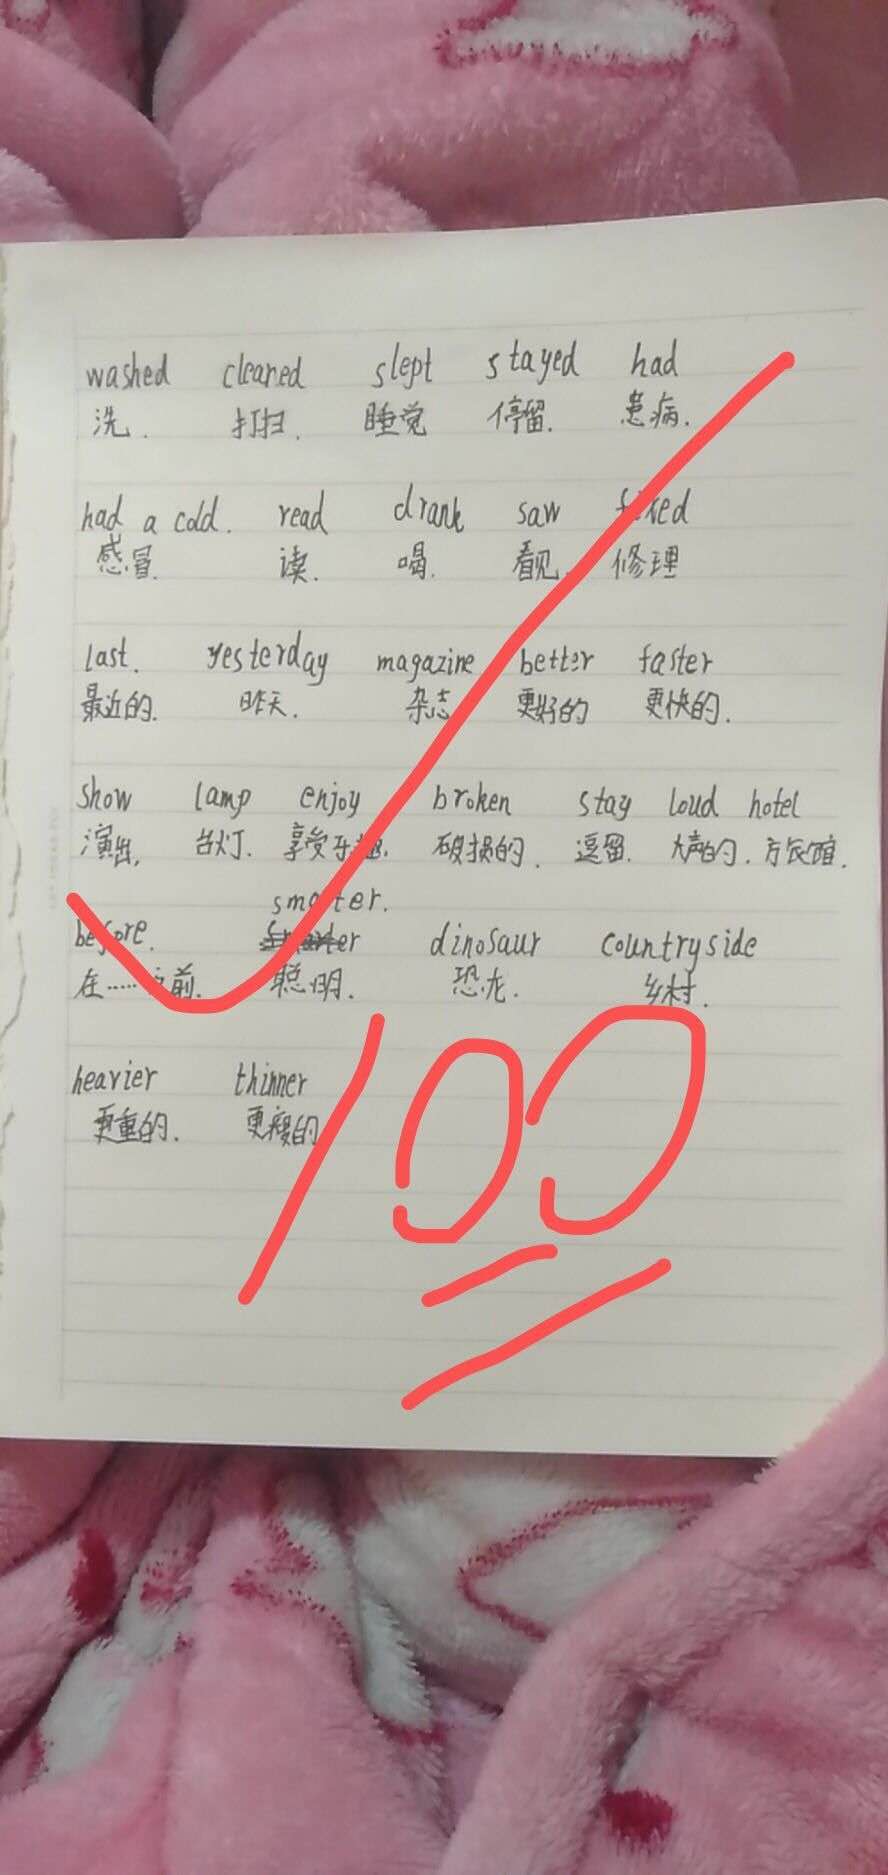 washed cleaned slept stayed had
洗. 打扫. 睡觉 停留. 患病.
had a cold. read drank saw fixed
感冒. 读. 喝. 看见. 修理
last. yesterday magazine better faster
最近的. 昨天. 杂志 更好的 更快的.
show lamp enjoy broken stay loud hotel
演出, 台灯. 享受乐趣. 破损的. 逗留. 大声的.
smarter.
before. dinosaur countryside
在……之前. 聪明. 恐龙. 乡村.
heavier thinner
更重的. 更瘦的
100